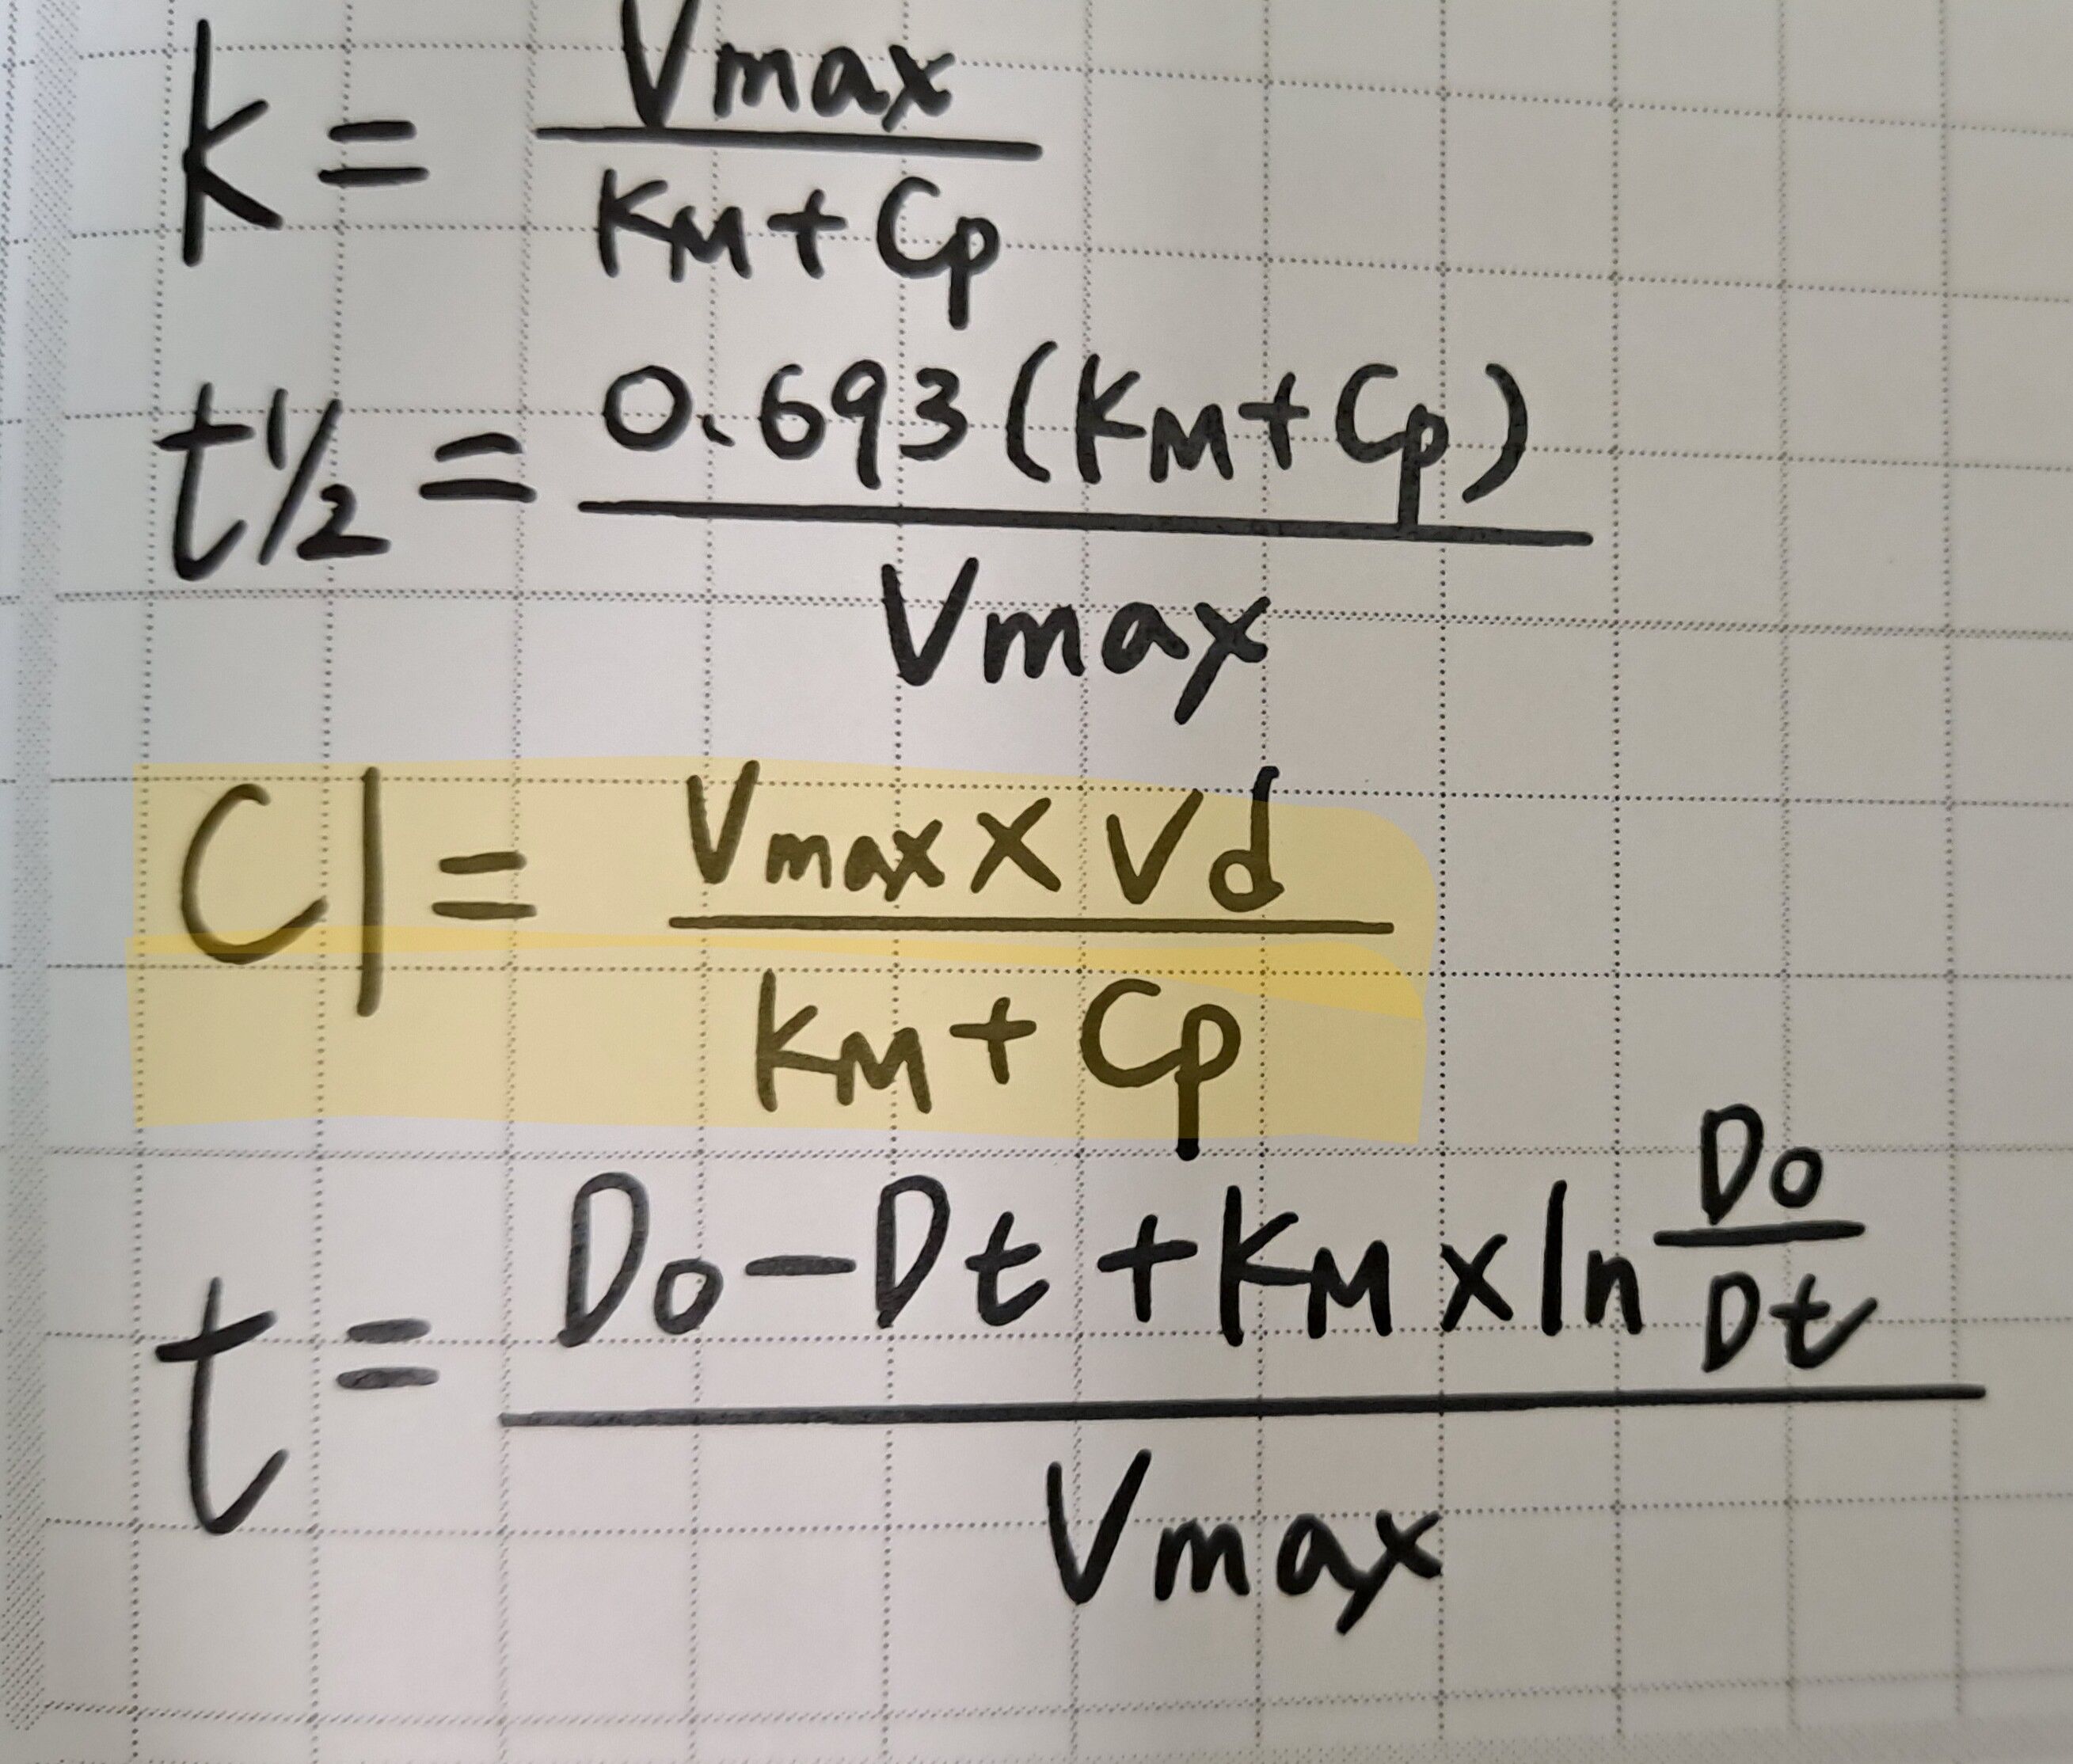 k = Vmax / (KM + Cp)
t½ = 0.693 (KM + Cp) / Vmax
Cl = (Vmax x Vd) / (KM + Cp)
t = (D0 - Dt + KM x ln D0/Dt) / Vmax